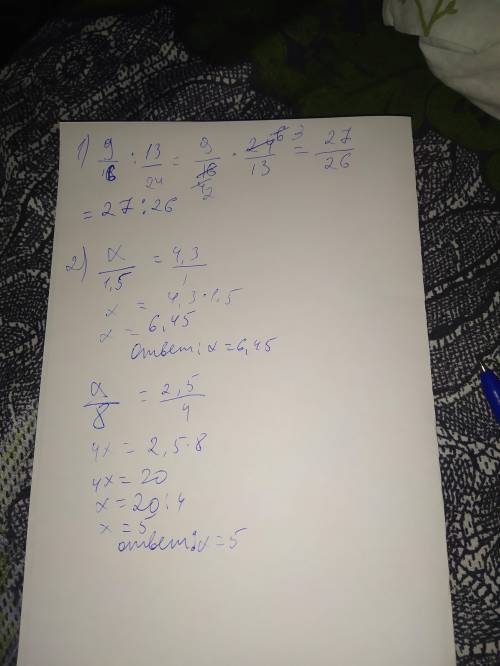 1) 9/16 : 13/24 = 9/16 · 24/13 = 27/26
= 27 : 26
2) x/1,5 = 4,3/1
x = 4,3 · 1,5
x = 6,45
Ответ: x = 6,45
x/8 = 2,5/4
4x = 2,5 · 8
4x = 20
x = 20 : 4
x = 5
ответ: x = 5